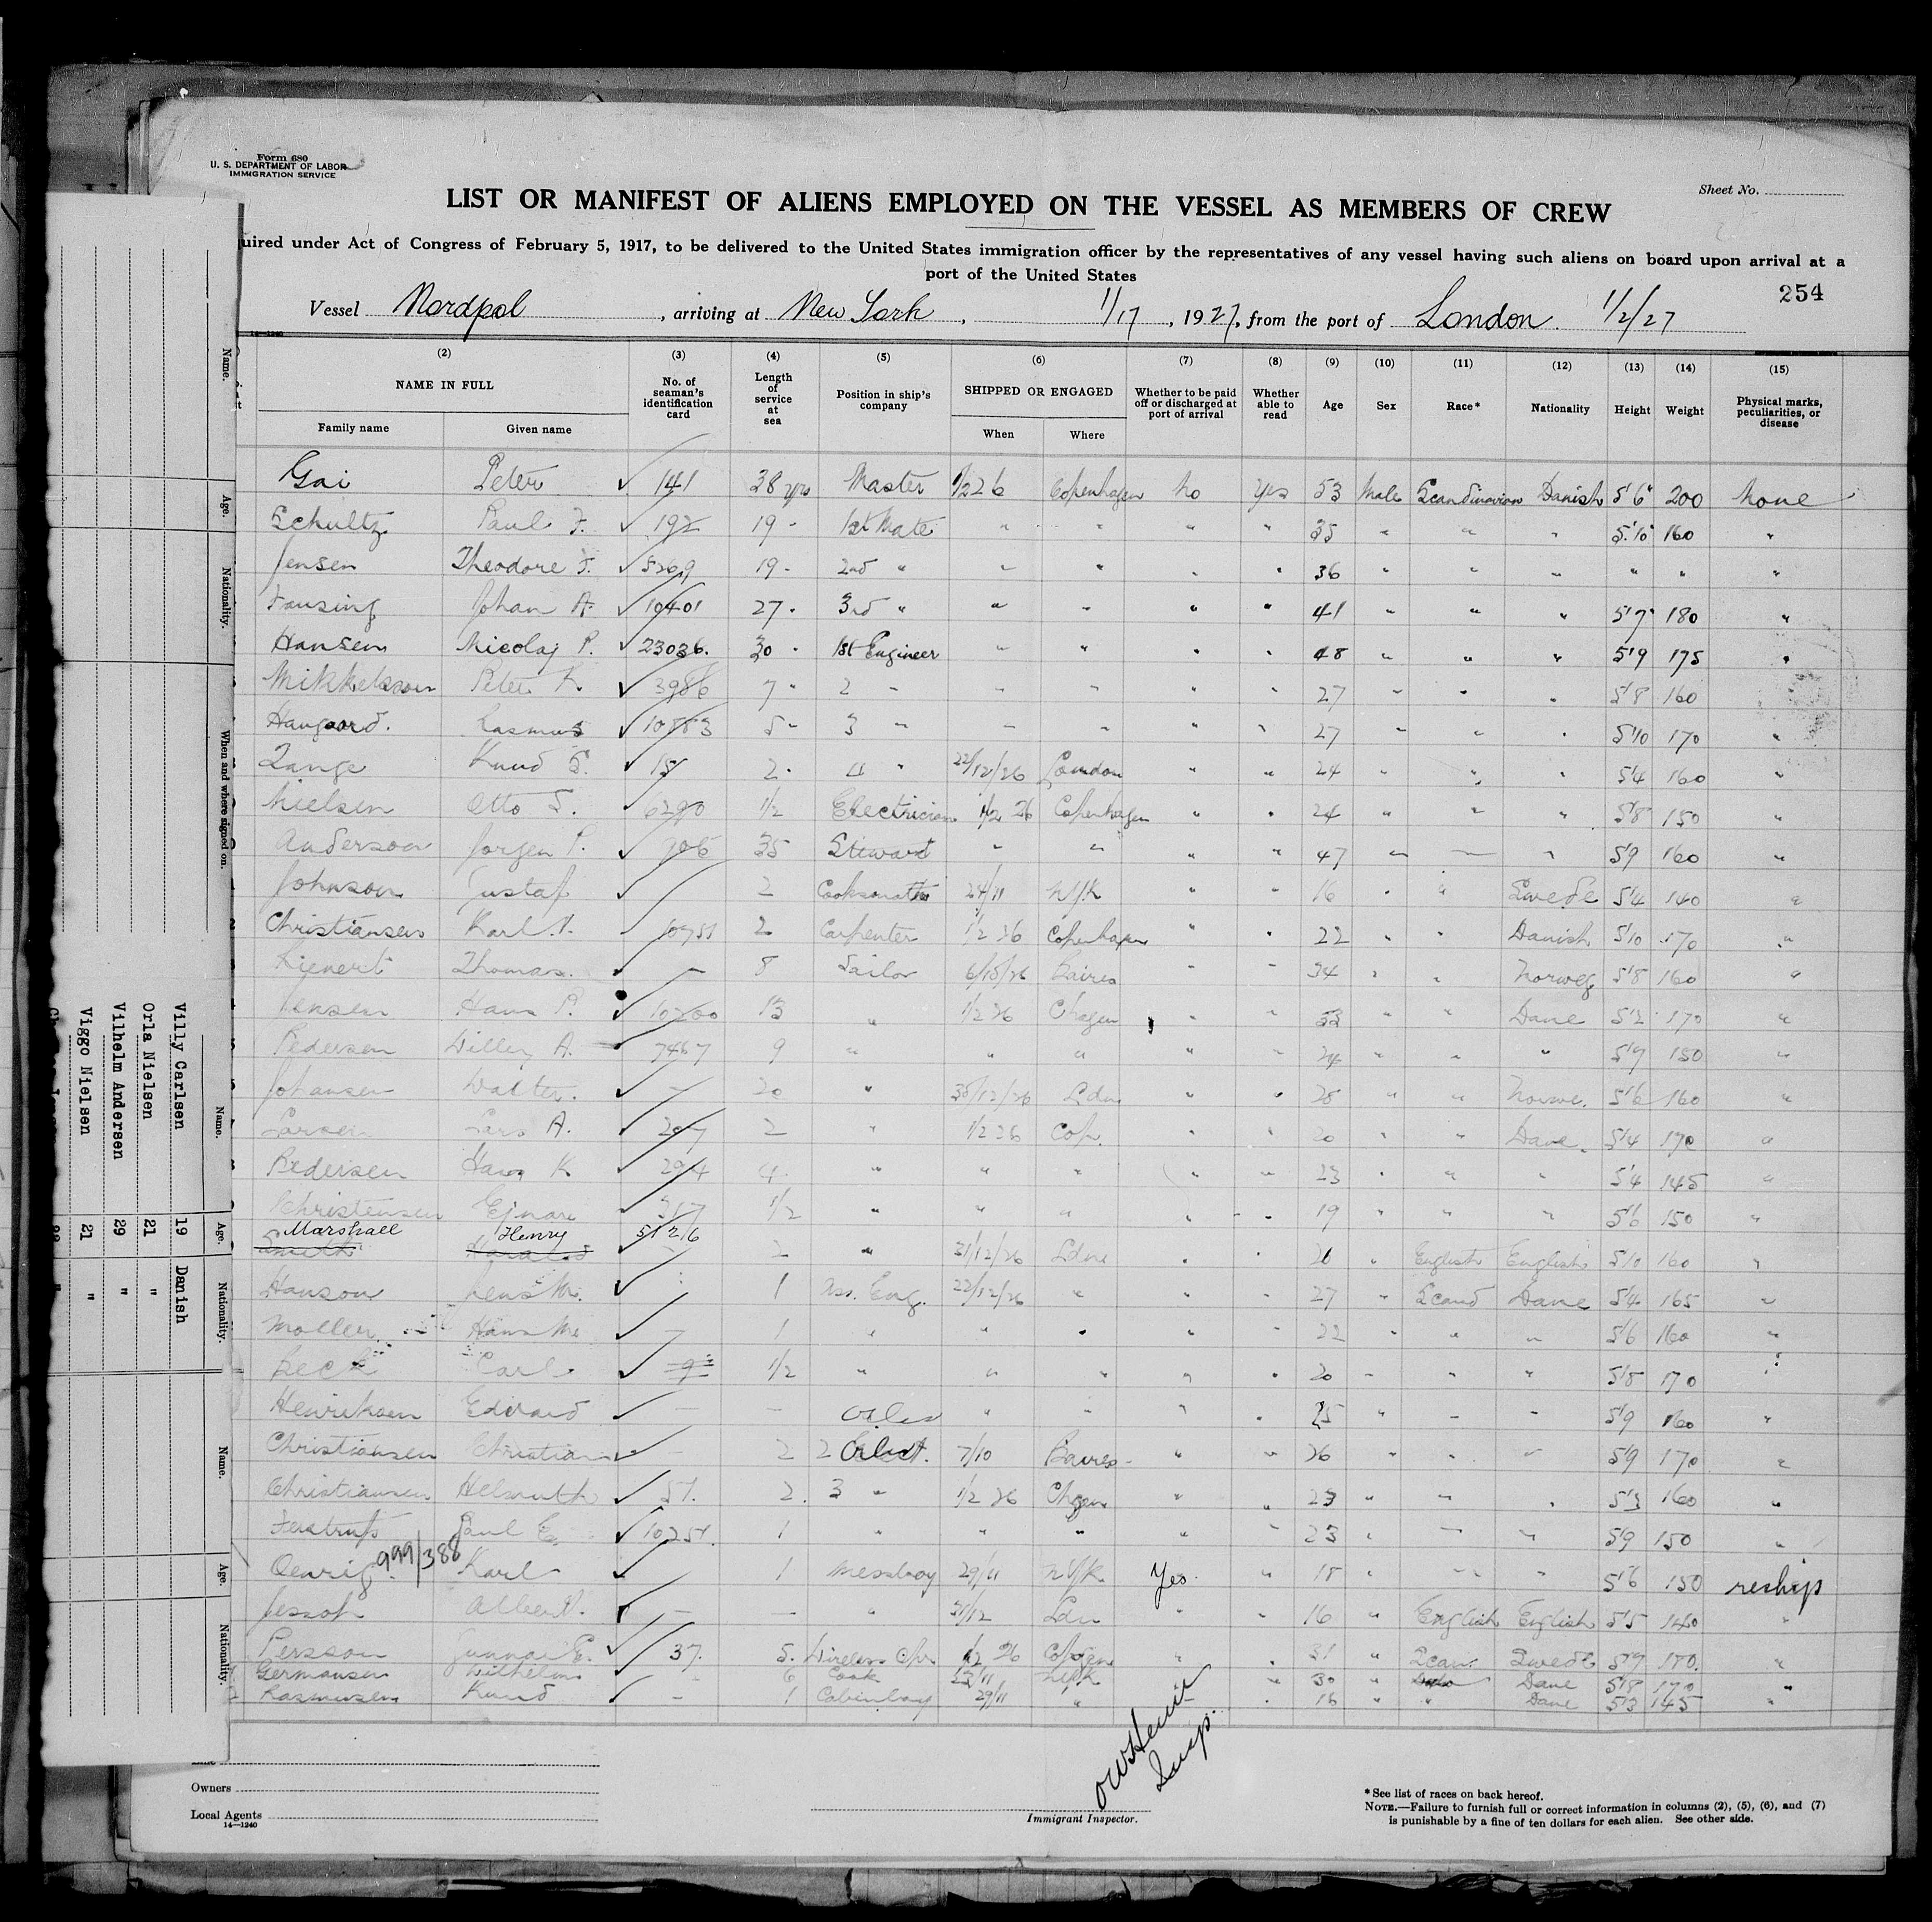 Form 680
U. S. DEPARTMENT OF LABOR
IMMIGRATION SERVICE
Sheet No.
LIST OR MANIFEST OF ALIENS EMPLOYED ON THE VESSEL AS MEMBERS OF CREW
uired under Act of Congress of February 5, 1917, to be delivered to the United States immigration officer by the representatives of any vessel having such aliens on board upon arrival at a
port of the United States
254
Vessel Nordpol, arriving at New York, 1/17, 1927, from the port of London. 1/2/27
14—1240
(2) (3) (4) (5) (6) (7) (8) (9) (10) (11) (12) (13) (14) (15)
NAME IN FULL No. of seaman's identification card Length of service at sea Position in ship's company SHIPPED OR ENGAGED Whether to be paid off or discharged at port of arrival Whether able to read Age Sex Race* Nationality Height Weight Physical marks, peculiarities, or disease
Family name Given name When Where
Gai Peter 141 38 yrs Master 1/2 26 Copenhagen No Yes 53 Male Scandinavian Danish 5'6" 200 None
Schultz Paul F. 192 19 " 1st Mate " " " " 35 " " " 5'10 160 "
Jensen Theodore F. 5269 19 " 2nd " " " " " 36 " " " " " "
Fausing Johan A. 10401 27 " 3rd " " " " " 41 " " " 5'7" 180 "
Hansen Nicolaj P. 23036. 30 " 1st Engineer " " " " 48 " " " 5'9 175 "
Mikkelsson Peter K. 3986 7 " 2 " " " " " 27 " " " 5'8 160
Haugaard. Rasmus 10883 5 " 3 " " " " " 27 " " " 5'10 170 "
Lange Knud 15 2 " 4 " 22/12/26 London " " 24 " " " 5'4 160 "
Nielsen Otto 6290 1/2 Electrician 1/2 26 Copenhagen " " 24 " " " 5'8 150 "
Anderson Jorgen P. 906 35 Steward " " " " 47 " " " 5'9 160 "
Johnson Gustaf 2 Cooksmate 24/11 N/Y/K " " 16 " " Swede 5'4 140 "
Christiansen Karl 10751 2 Carpenter 1/2 26 Copenhagen " " 22 " " Danish 5'10 170 "
Kienert Thomas. - 8 Sailor 6/10/26 Baires " " 34 " " Norweg 5'8 160 "
Jensen Hans P. 10200 13 " 1/2 26 Chagen " " 33 " " Dane 5'2 170 "
Pedersen Willey A. 7467 9 " " " " " 24 " " " 5'9 150 "
Johansen Walter. - 20 " 30/12/26 Ldn " " 28 " " Norwe. 5'6 160 "
Larsen Lars A. 207 2 " 1/2 26 Cop. " " 20 " " Dane. 5'4 170 "
Pedersen Hans K 294 4 " " " " " 23 " " " 5'4 145 "
Christensen Ejnar 317 1/2 " " " " " 19 " " " 5'6 150 "
Marshall Henry 5126
Smith Harald 2 " 31/12/26 Ldn " " English English 5'10 160 "
Hanson Jens 1 Ass. Eng. 22/12/26 " " " 27 " Scand Dane 5'4 165 "
Moller Hans - 1 " " " " " 22 " " " 5'6 160 "
Beck Carl 1/2 " " " " " 20 " " " 5'8 170
Henriksen Edvard - - Oiler " " " " 25 " " " 5'9 160 "
Christiansen Christian - 2 2 7/10 Baires " " 26 " " " 5'9 170 "
Christiansen Helmuth 57. 2. 3 " 1/2 26 Chgen " " 23 " " " 5'3 160 "
Paul E. 10251. 1 " " " " " 23 " " " 5'9 150 "
999/388
Karl 1 Messboy 29/11 N/Y/K Yes. " 18 " " " 5'6 150 reship
Jessop Albert - - " 31/12 Ldn " " 16 " English English 5'5 140 "
Persson Gunnar E. 37. 5. Wireless Opr. 1/2 26 Cphgn " " 31 " Scan. Swede 5'9 150. "
Germansen Wilhelm 6 Cook 23/11 N/Y/K 30 " Dane 5'8 170 "
Rasmussen Knud - 1 Cabinboy 29/11 " " " 16 " " Dane 5'3 145 "
Name.
Age.
Nationality.
When and where signed on.
Name.
Age.
Nationality.
Name.
Age.
Nationality.
Willy Carlsen 19 Danish
Orla Nielsen 21 "
Vilhelm Andersen 29 "
Viggo Nielsen 21 "
Owners
Local Agents
14—1240
Insp.
Immigrant Inspector.
*See list of races on back hereof.
NOTE.—Failure to furnish full or correct information in columns (2), (5), (6), and (7)
is punishable by a fine of ten dollars for each alien. See other side.